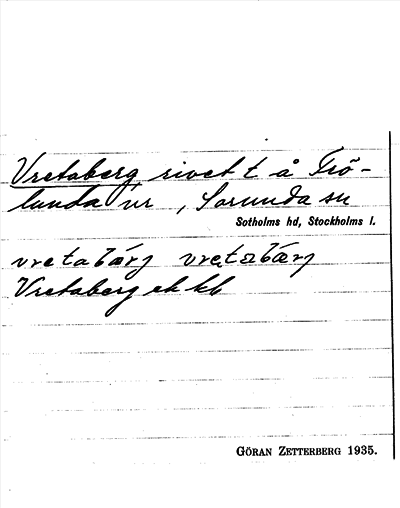 Vretaberg rivet t å Frö-
lunda nr , Sorunda sn
Sotholms hd, Stockholms l.
vretabärj vretabärj
Vretaberg ek kb
GÖRAN ZETTERBERG 1935.